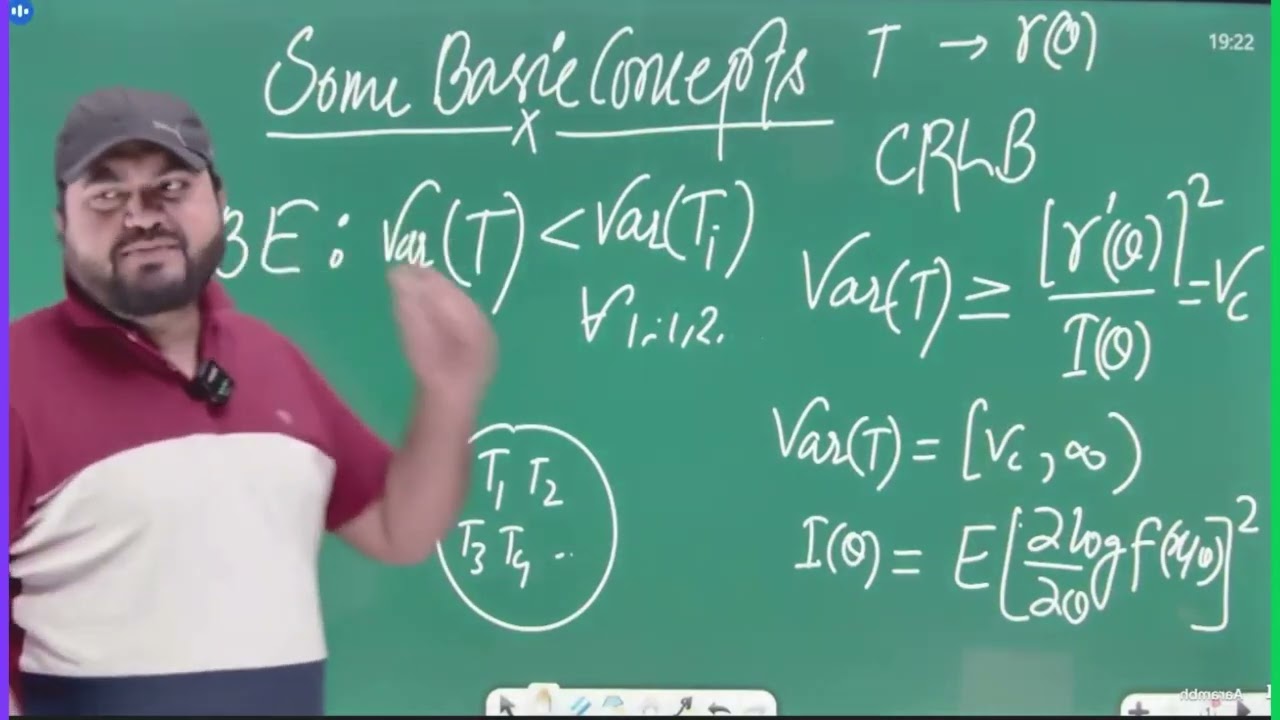 Some Basic Concepts
x
T → r(θ)
19:22
CRLB
BE : Var(T) < Var(Ti)
∀ i=1,2.
Var(T) ≥ [r'(θ)]² / I(θ) = Vc
Var(T) = [Vc, ∞)
T1 T2
T3 T4 ..
I(θ) = E[∂ log f(x/θ) / ∂θ]²
Aarambh